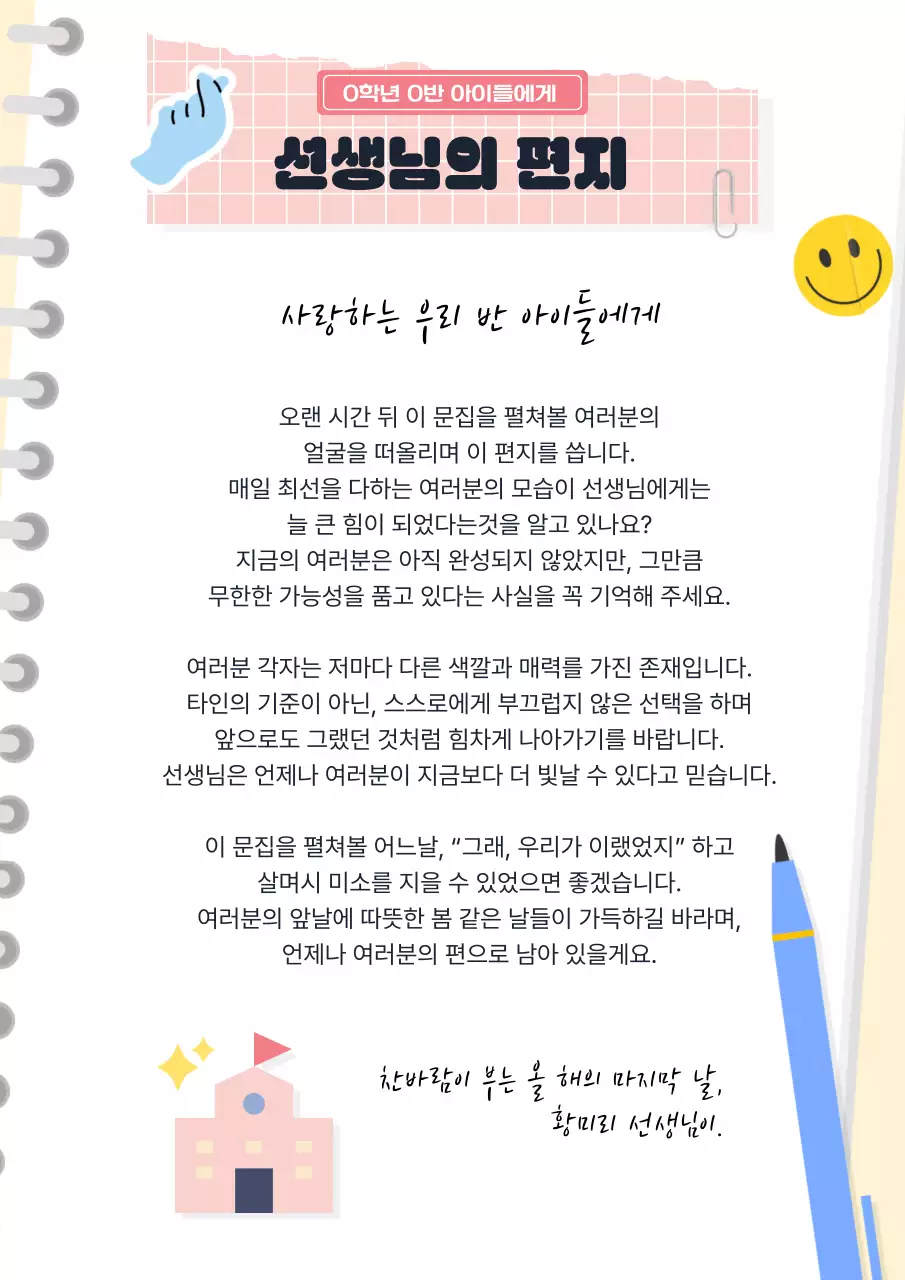 O학년 O반 아이들에게
선생님의 편지
사랑하는 우리 반 아이들에게
오랜 시간 뒤 이 문집을 펼쳐볼 여러분의
얼굴을 떠올리며 이 편지를 씁니다.
매일 최선을 다하는 여러분의 모습이 선생님에게는
늘 큰 힘이 되었다는것을 알고 있나요?
지금의 여러분은 아직 완성되지 않았지만, 그만큼
무한한 가능성을 품고 있다는 사실을 꼭 기억해 주세요.
여러분 각자는 저마다 다른 색깔과 매력를 가진 존재입니다.
타인의 기준이 아닌, 스스로에게 부끄럽지 않은 선택을 하며
앞으로도 그랬던 것처럼 힘차게 나아가기를 바랍니다.
선생님은 언제나 여러분이 지금보다 더 빛날 수 있다고 믿습니다.
이 문집을 펼쳐볼 어느날, “그래, 우리가 이랬었지” 하고
살며시 미소를 지을 수 있었으면 좋겠습니다.
여러분의 앞날에 따뜻한 봄 같은 날들이 가득하길 바라며,
언제나 여러분의 편으로 남아 있을게요.
찬바람이 부는 올 해의 마지막 날,
황미리 선생님이.